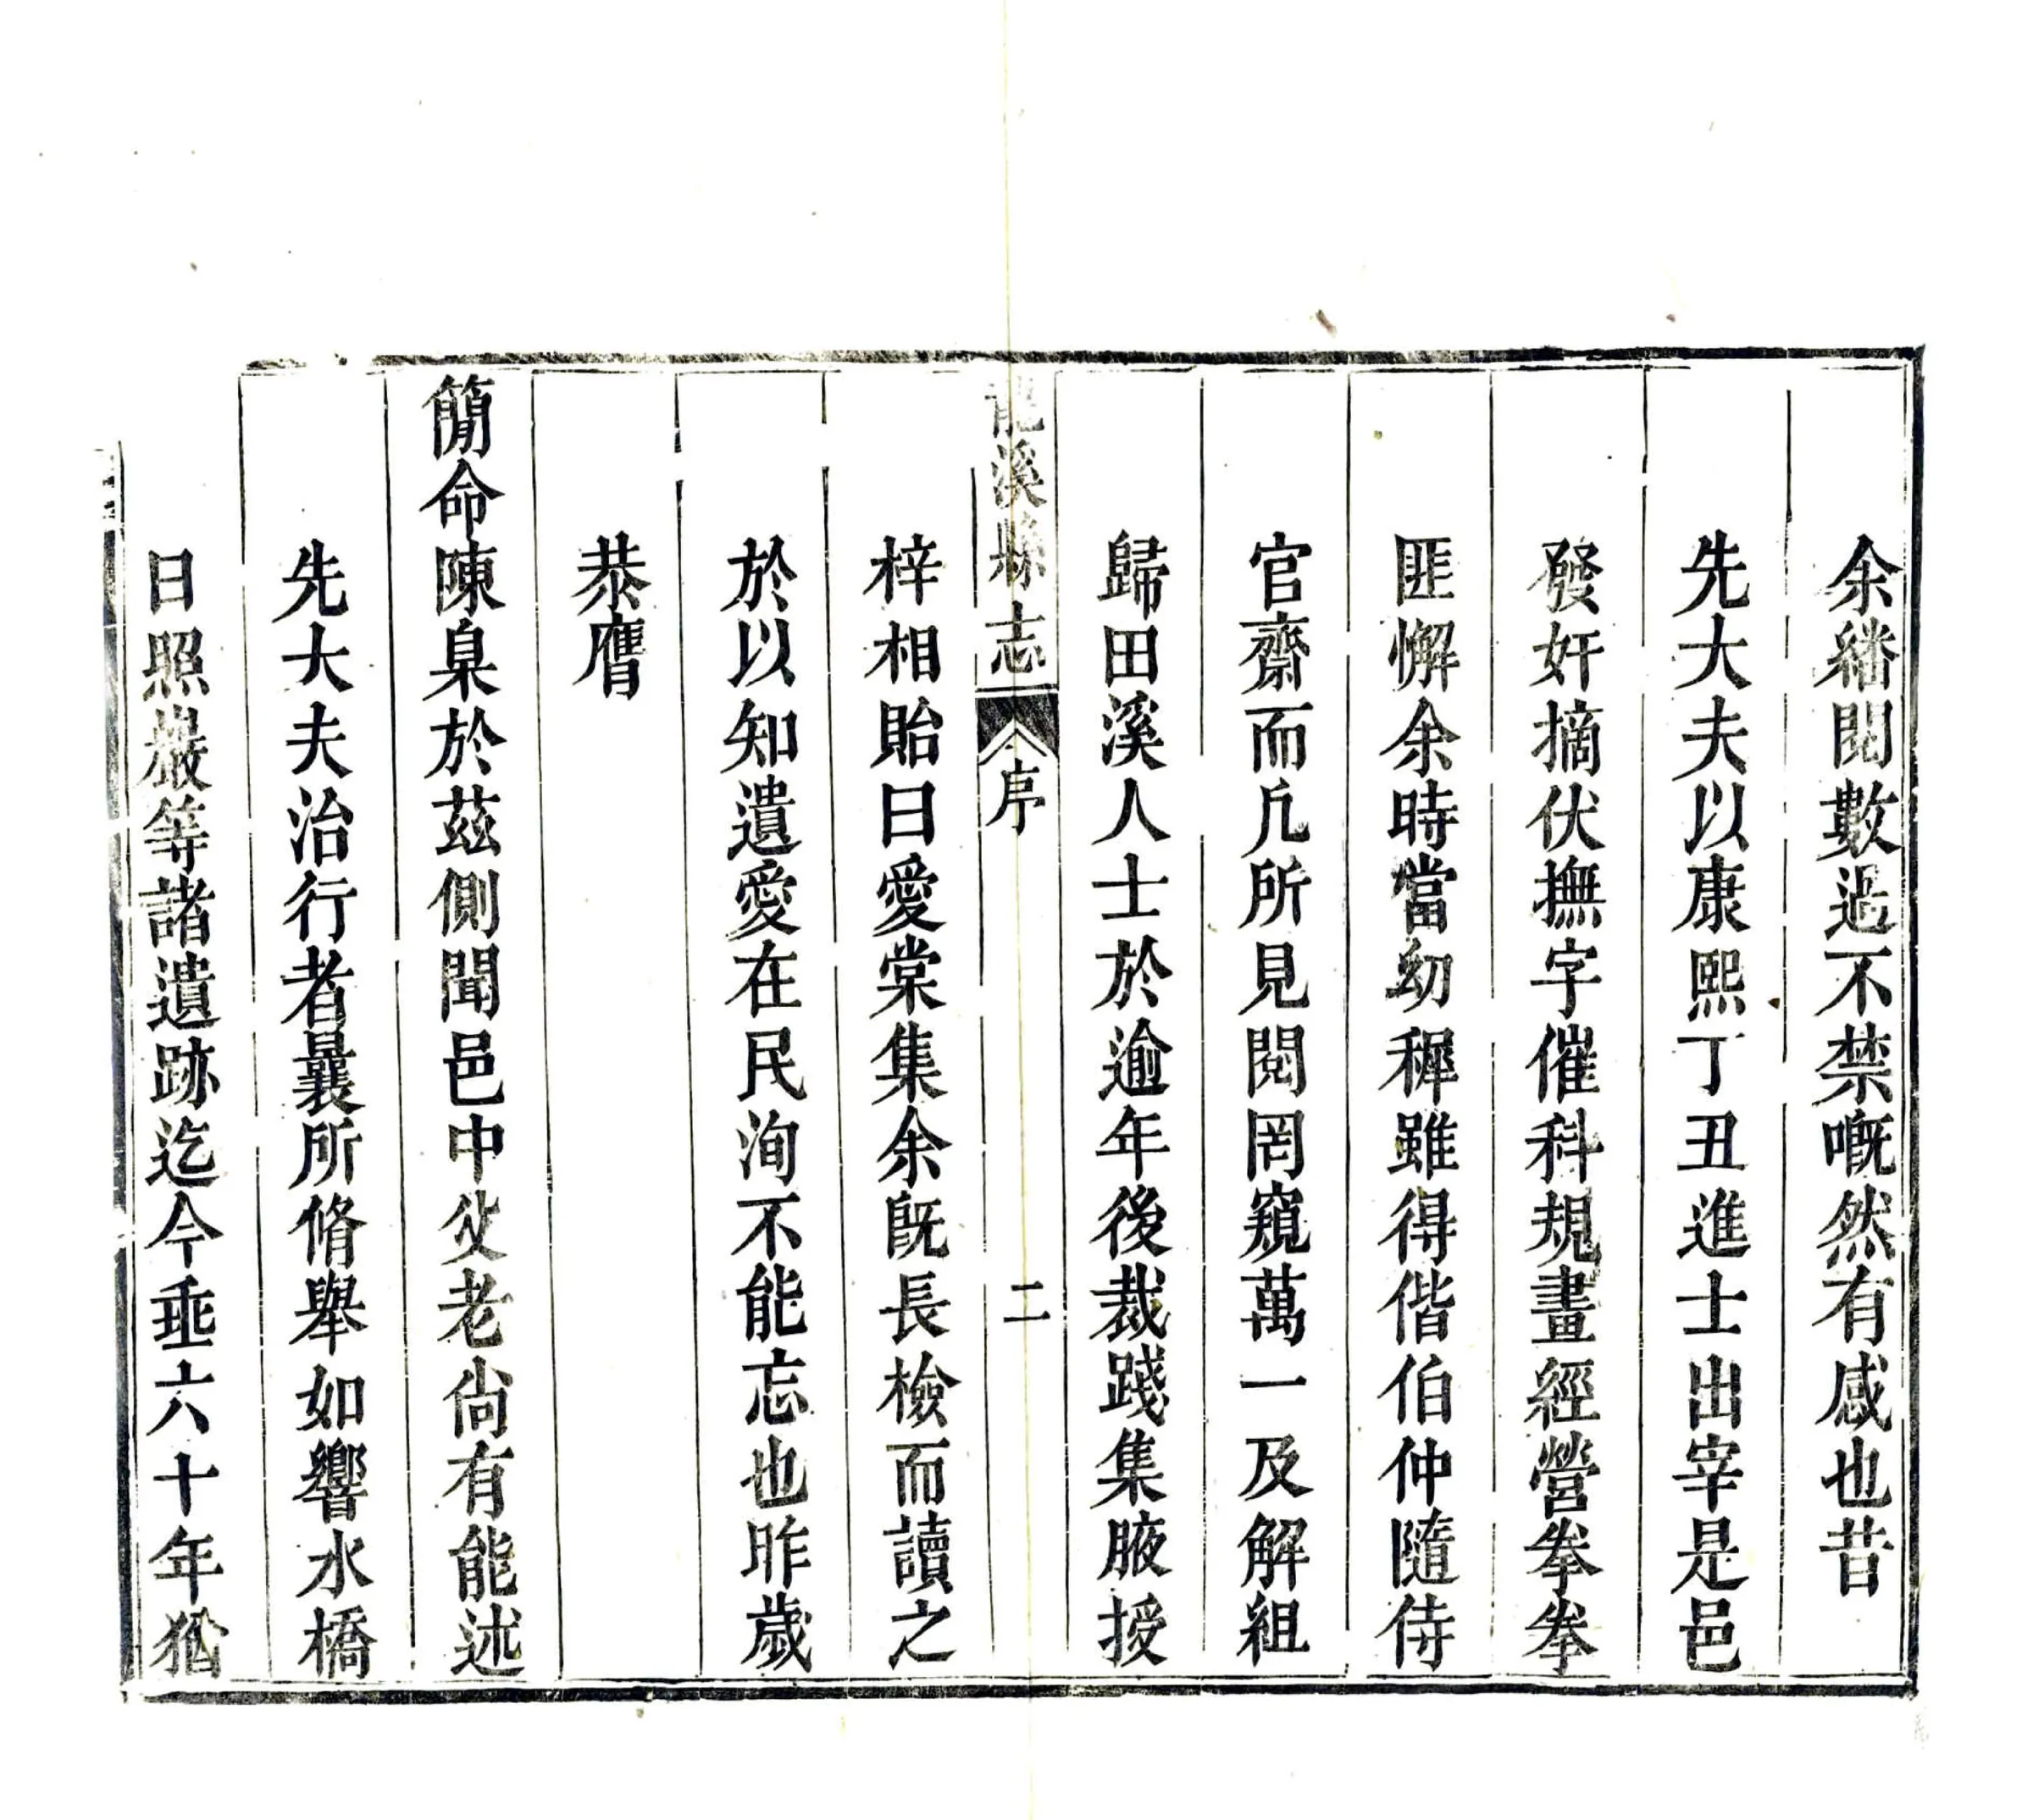 余繙閱數過不禁嘅然有感也昔
先大夫以康熙丁丑進士出宰是邑
發奸摘伏撫字催科規畫經營拳拳
匪懈余時當幼穉雖得偕伯仲隨侍
官齋而凢所見閱罔窺萬一及解組
歸田溪人士於逾年後裁踐集腋授
龍溪縣志 序 二
梓相貽曰愛棠集余旣長檢而讀之
於以知遺愛在民洵不能忘也昨歲
恭膺
簡命陳臬於茲側聞邑中父老尙有能述
先大夫治行者曩所脩舉如響水橋
日照巖等諸遺跡迄今垂六十年猶